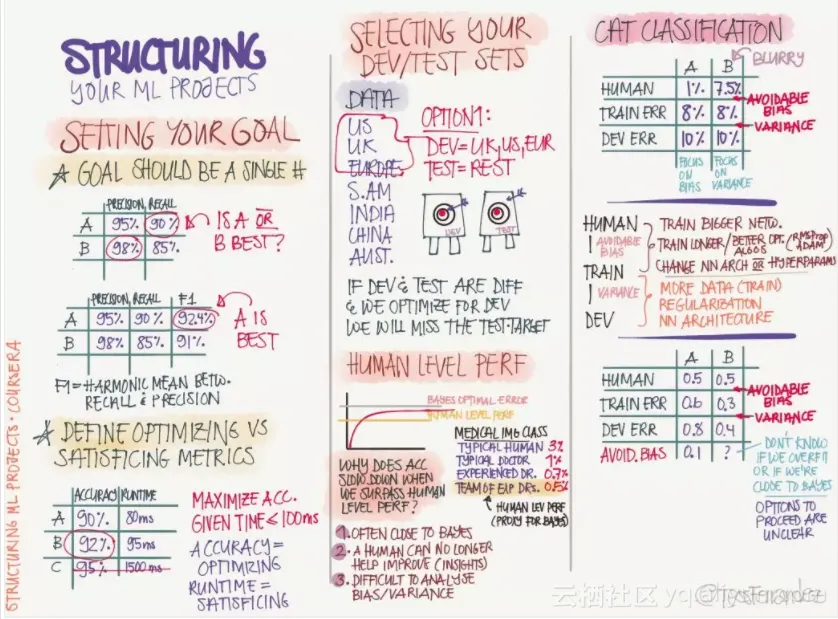 STRUCTURING
YOUR ML PROJECTS
SETTING YOUR GOAL
GOAL SHOULD BE A SINGLE #
PRECISION, RECALL
A 95% 90%
B 98% 85%
IS A OR
B BEST?
PRECISION, RECALL F1
A 95% 90% 92.4%
B 98% 85% 91%
A IS
BEST
F1 = HARMONIC MEAN BETW.
RECALL & PRECISION
DEFINE OPTIMIZING VS
SATISFICING METRICS
ACCURACY RUNTIME
A 90% 80ms
B 92% 95ms
C 95% 1500ms
MAXIMIZE ACC.
GIVEN TIME ≤ 100ms
ACCURACY =
OPTIMIZING
RUNTIME =
SATISFICING
STRUCTURING ML PROJECTS · COURSERA
SELECTING YOUR
DEV/TEST SETS
DATA
US
UK
EUROPE
S.AM
INDIA
CHINA
AUST.
OPTION 1:
DEV = UK, US, EUR
TEST = REST
DEV
TEST
IF DEV & TEST ARE DIFF
& WE OPTIMIZE FOR DEV
WE WILL MISS THE TEST TARGET
HUMAN LEVEL PERF
BAYES OPTIMAL ERROR
HUMAN LEVEL PERF
MEDICAL IMG CLASS
TYPICAL HUMAN 3%
TYPICAL DOCTOR 1%
EXPERIENCED DR. 0.7%
TEAM OF EXP DRS. 0.5%
HUMAN LEV PERF
(PROXY FOR BAYES)
WHY DOES ACC
SLOW DOWN WHEN
WE SURPASS HUMAN
LEVEL PERF?
1. OFTEN CLOSE TO BAYES
2. A HUMAN CAN NO LONGER
HELP IMPROVE (INSIGHTS)
3. DIFFICULT TO ANALYSE
BIAS/VARIANCE
CAT CLASSIFICATION
A B
BLURRY
HUMAN 1% 7.5%
AVOIDABLE
BIAS
TRAIN ERR 8% 8%
VARIANCE
DEV ERR 10% 10%
FOCUS
ON
BIAS
FOCUS
ON
VARIANCE
HUMAN
AVOIDABLE
BIAS
TRAIN
VARIANCE
DEV
TRAIN BIGGER NETW.
TRAIN LONGER/BETTER OPT. ALGOS (RMSPROP ADAM)
CHANGE NN ARCH OR HYPERPARAMS
MORE DATA (TRAIN)
REGULARIZATION
NN ARCHITECTURE
A B
HUMAN 0.5 0.5
AVOIDABLE
BIAS
TRAIN ERR 0.6 0.3
VARIANCE
DEV ERR 0.8 0.4
AVOID. BIAS 0.1 ?
DON'T KNOW
IF WE OVERFIT
OR IF WE'RE
CLOSE TO BAYES
OPTIONS TO
PROCEED ARE
UNCLEAR
云栖社区